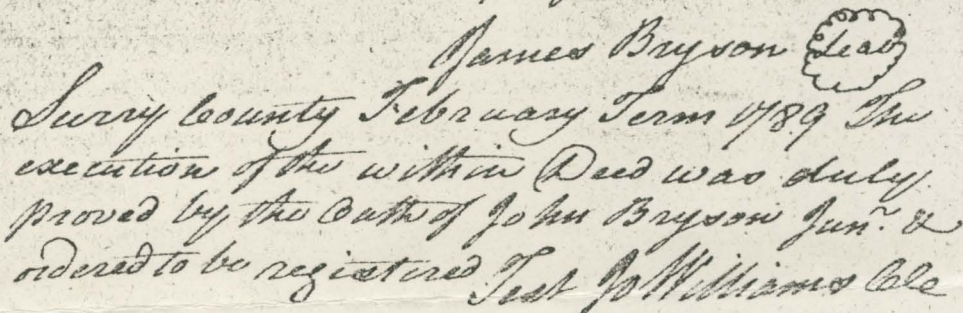 James Bryson Seal
Surry County February Term 1789 The
execution of the within Deed was duly
proved by the Oath of John Bryson Junr. &
ordered to be registered Test Jo Williams Clk